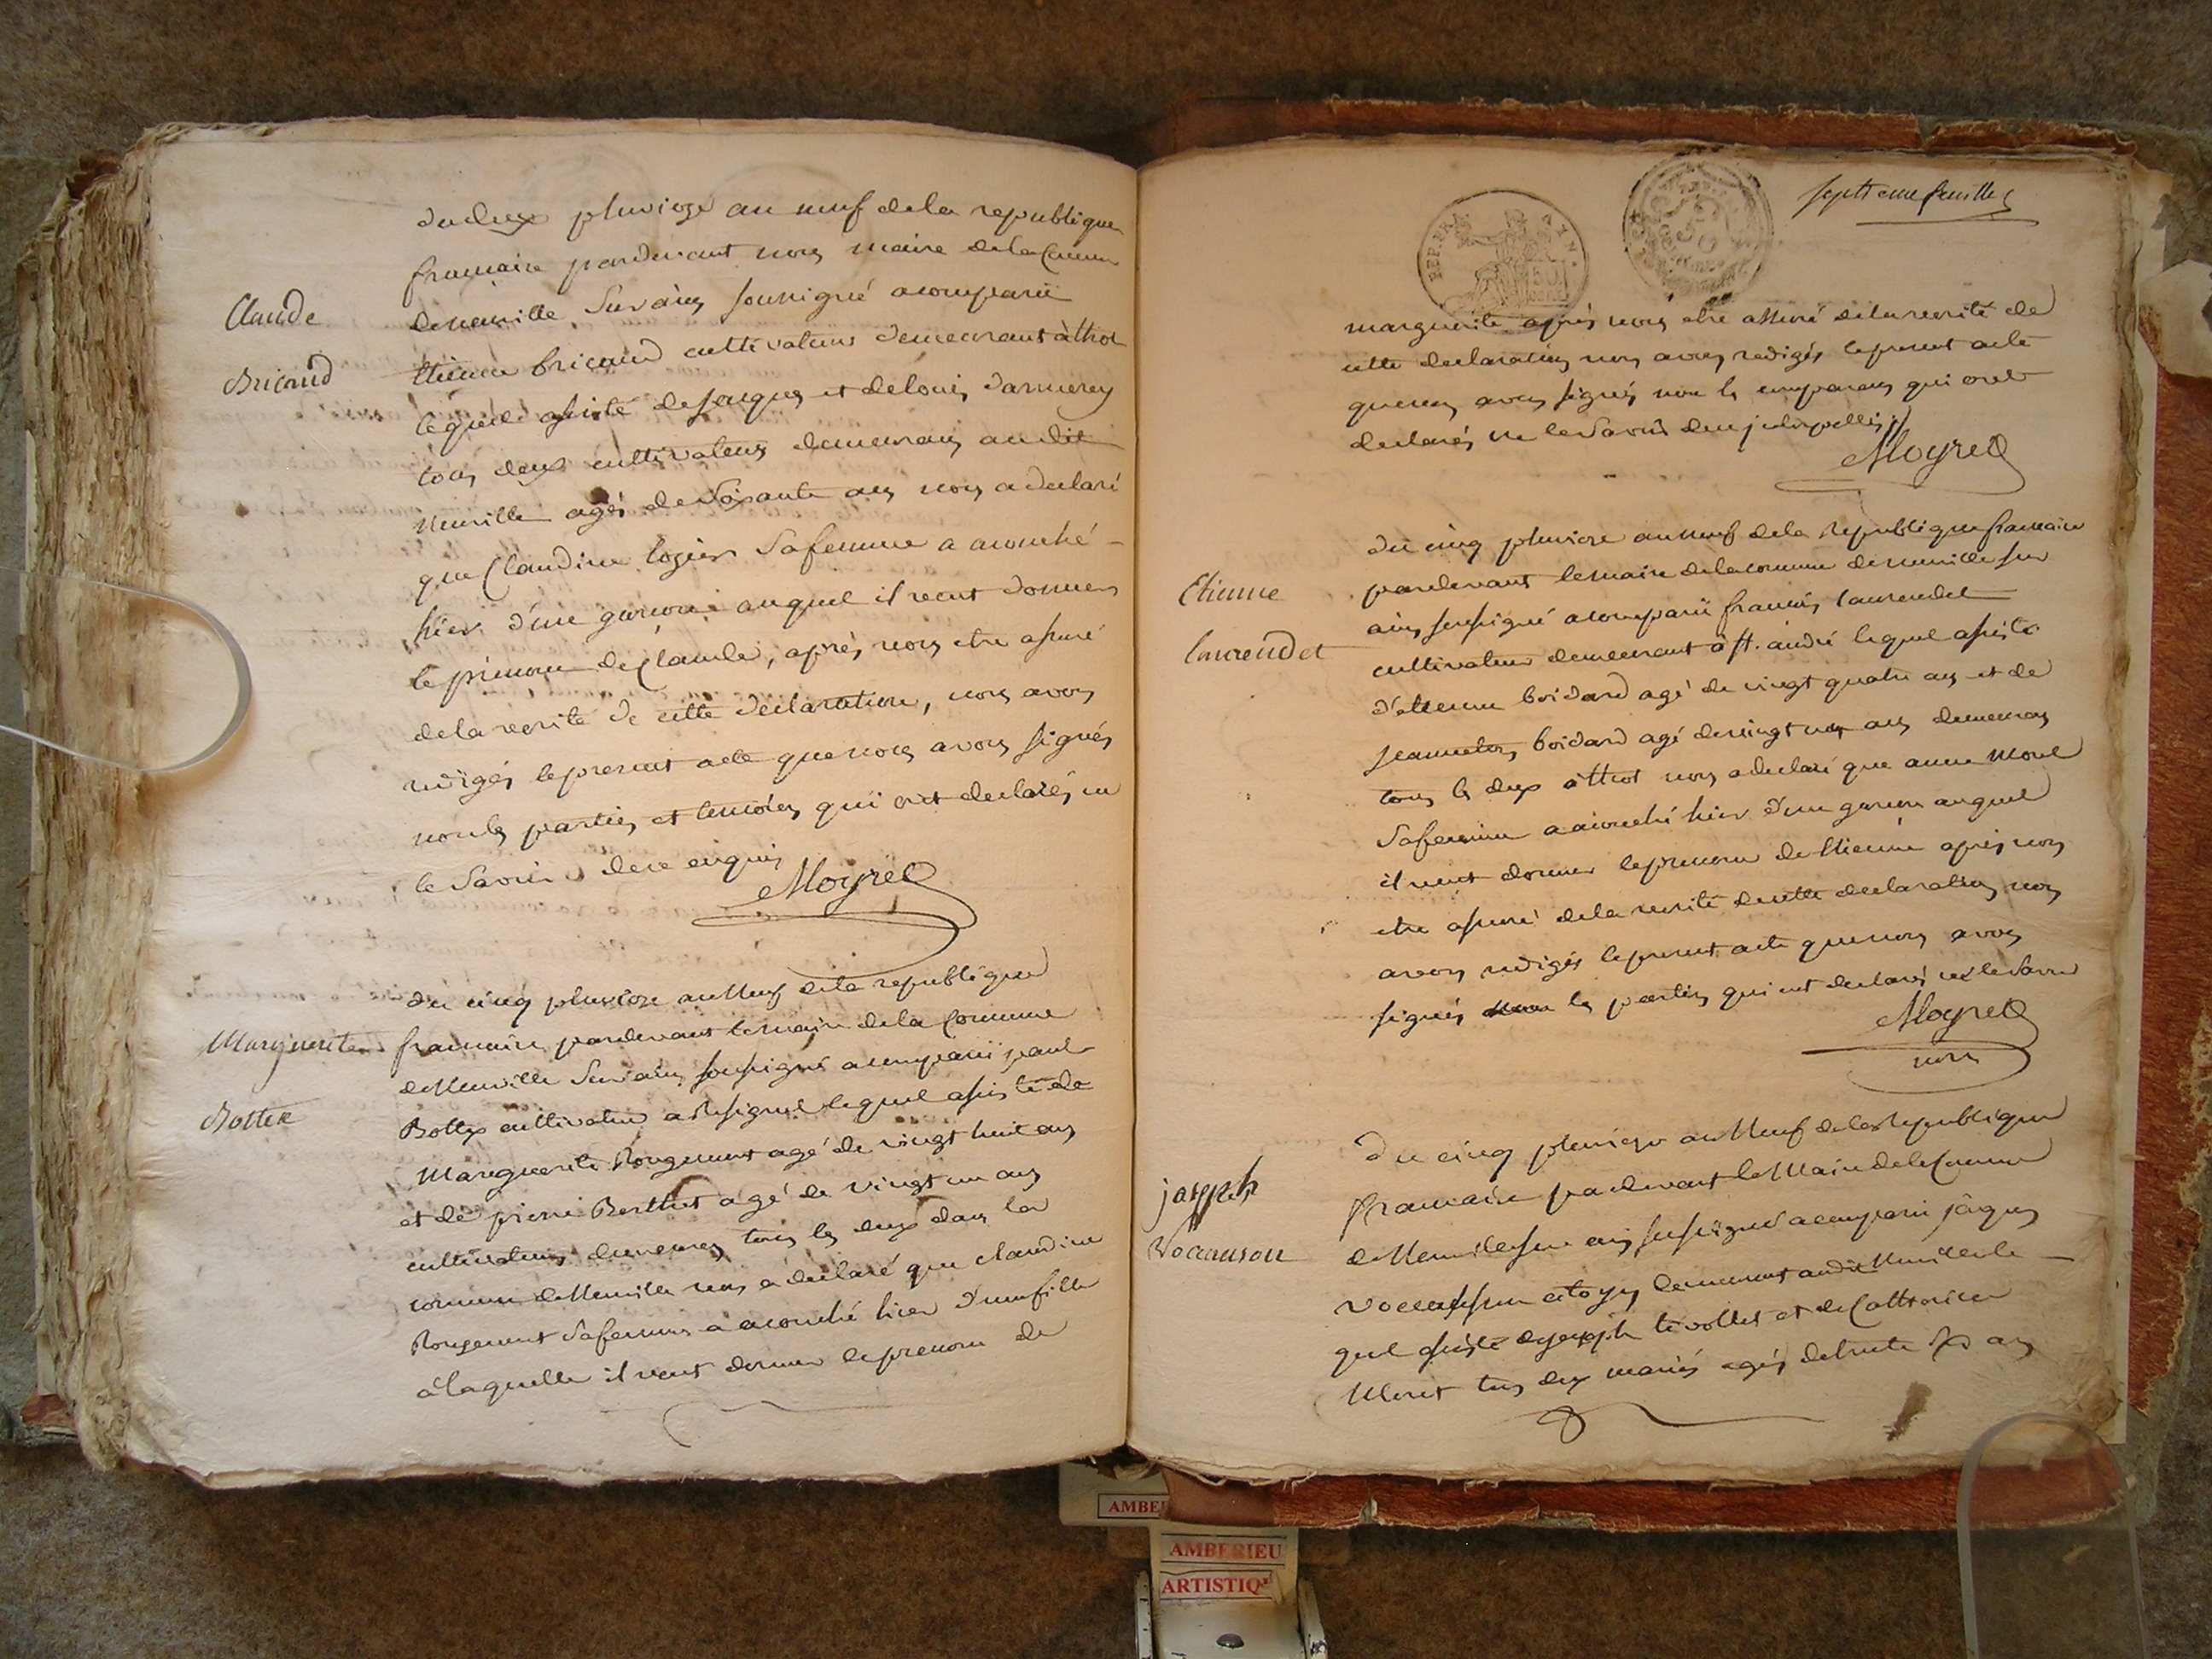 du deux pluviose an neuf de la republique
francaise pardevant nous maire de la Commune
de neuville sur ains soussigné a comparu
Claude
Etienne bricaud cultivateur demeurant à thol
Bricaud
lequel assisté de jaques et de louis darmerey
tous deux cultivateurs demeurans audit
neuville agés de soixante ans nous a declaré
que Claudine logier sa femme a acouché
hier d'un garcon auquel il veut donner
le prénom de Claude, après nous etre assuré
de la verité de cette declaration, nous avons
redigés le present acte que nous avons signés
non les parties et temoins qui ont declarés ne
le savoir de ce enquis
Moyret
du cinq pluviose an neuf de la republique
Marguerite
francaise pardevant le maire de la Commune
de Neuville sur ains soussigné a comparu paul
Bottex
Bottex cultivateur a Resignel lequel assisté de
Marguerite Rougemont agé de vingt huit ans
et de pierre Berthet agé de vingt un ans
cultivateurs demeurans tous les deux dans la
commune de Neuville nous a declaré que claudine
Rougemont sa femme a acouché hier d'une fille
à laquelle il veut donner le prenom de
septieme feuillet
REP. FRA
50
marguerite après nous etre assuré de la verité de
cette declaration nous avons redigés le present acte
que nous avons signés non les comparans qui ont
declarés ne le savoir de ce interpellés
Moyret
du cinq pluviose an neuf de la Republique francaise
Etienne
pardevant le maire de la comune de neuville sur
ains soussigné a comparu francois laurendet
laurendet
cultivateur demeurant à st. andré lequel assisté
d'etienne boidard agé de vingt quatre ans et de
boidard agé de vingt ans demeurans
tous les deux à thol nous a declaré que anne morel
sa femme a acouché hier d'un garcon auquel
il veut donner le prenom de Etienne après nous
etre assuré de la verité de cette declaration nous
avons redigés le present acte que nous avons
signés les parties qui ont declaré ne le savoir
Moyret
du cinq pluviose an Neuf de la Republique
joseph
francaise pardevant le Maire de la Commune
vocanson
de Neuville sur ains soussigné a comparu jâques
demeurant audit Neuville le
quel assisté de joseph tevollet et de Cattherine
Moret tous deux mariés agés de trente six ans
AMBERIEU
ARTISTIQ